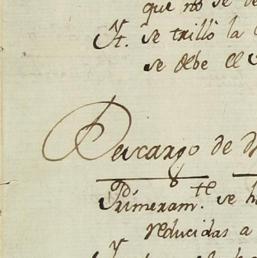 que no se
Yt. se trilló la
se debe el
Descargo de
Primeramte. se
reducidas a
Yt.